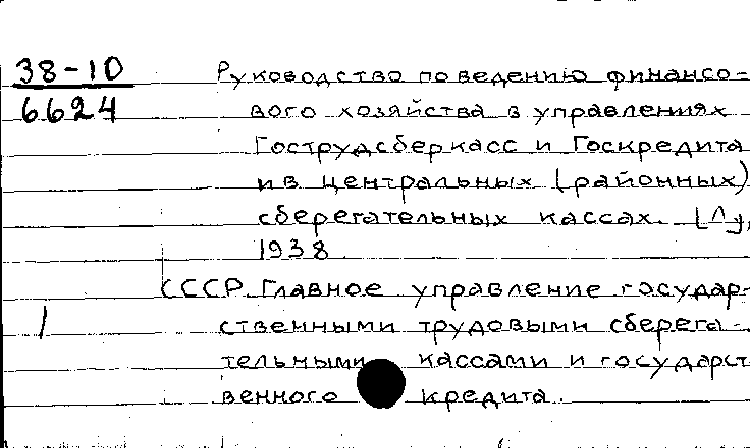 38-10
6624
Руководство по ведению финансо-
вого хозяйства в управлениях
Гострудсберкасс и Госкредита
и в центральных (районных)
сберегательных кассах.
1938
СССР. Главное управление государ-
1
ственными трудовыми сберега-
тельными кассами и государст
венного кредита.